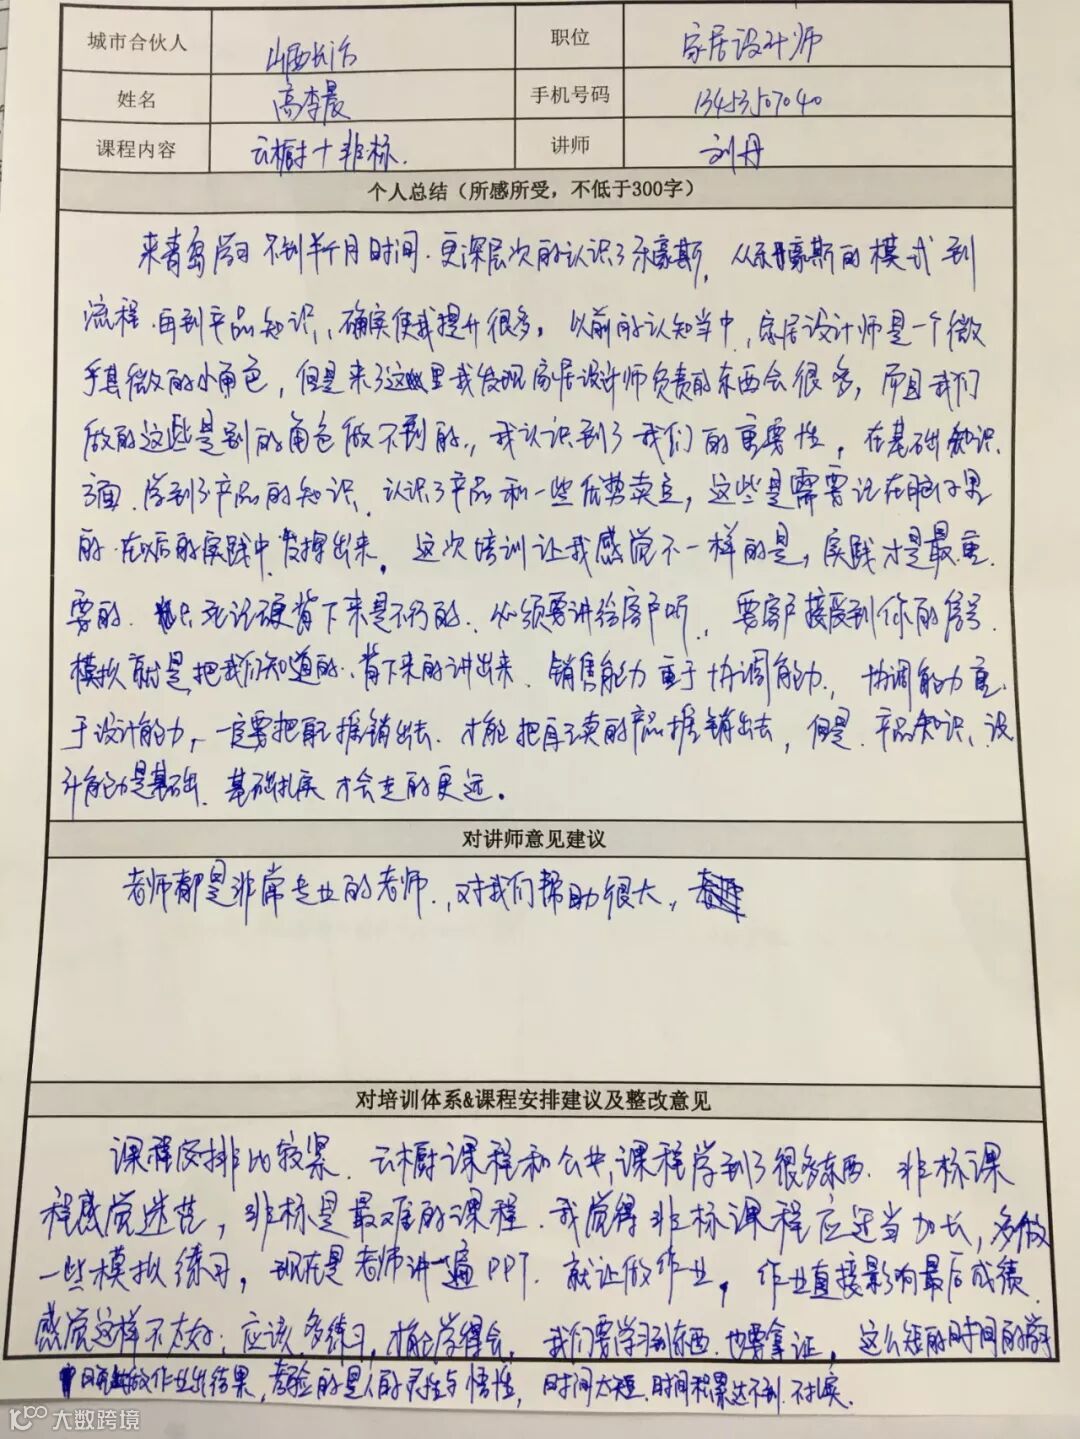 城市合伙人 山西长治 职位 家居设计师
姓名 高李晨 手机号码 13453507040
课程内容 云橱+非标. 讲师 刘丹
个人总结（所感所受，不低于300字）
来青岛学习不到半个月时间.更深层次的认识了乐豪斯，从乐豪斯的模式到
流程.再到产品知识,确实使我提升很多。以前的认知当中,家居设计师是一个微
乎其微的小角色，但是来了这里我发现家居设计师负责的东西会很多，而且我们
做的这些是别的角色做不到的,我认识到了我们的重要性。在基础知识
方面.学到了产品的知识.认识了产品和一些优势卖点，这些是需要记在脑子里
的.在以后的实践中发挥出来。这次培训让我感觉不一样的是，实践才是最重
要的.只死记硬背下来是不行的.必须要讲给客户听.要客户接受到你的信号.
模拟就是把我们知道的.背下来的讲出来.销售能力重于协调能力.协调能力重
于设计能力,一定要把自己推销出去.才能把自己卖的产品推销出去，但是.产品知识、设
计能力是基础.基础扎实才会走的更远。
对讲师意见建议
老师都是非常专业的老师.,对我们帮助很大，
对培训体系&课程安排建议及整改意见
课程安排比较紧.云橱课程和公共课程学到了很多东西.非标课
程感觉迷茫，非标是最难的课程.我觉得非标课程应适当加长，多做
一些模拟练习，现在是老师讲一遍PPT.就让做作业，作业直接影响最后成绩.
感觉这样不太好.应该多练习，才能学得会，我们要学习到东西.也要拿证，这么短的时间的学习
做作业出结果，考验的是人的灵性与悟性，时间太短.时间积累达不到.不扎实.
大数跨境